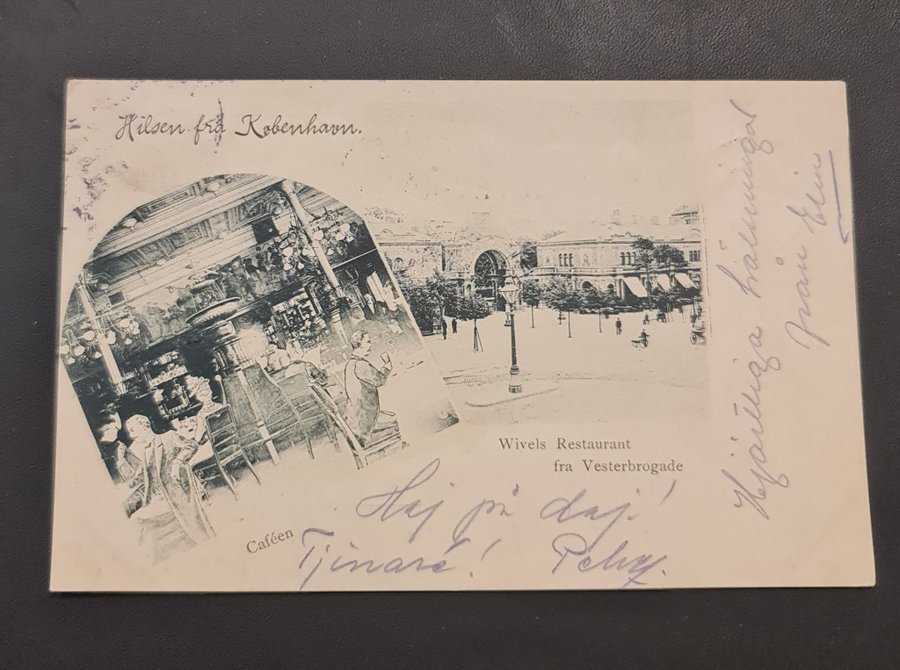 Hilsen fra København.
Wivels Restaurant
fra Vesterbrogade
Caféen
Haj på daj!
Tjinare!
Hjärtliga hälsningar
från Elin